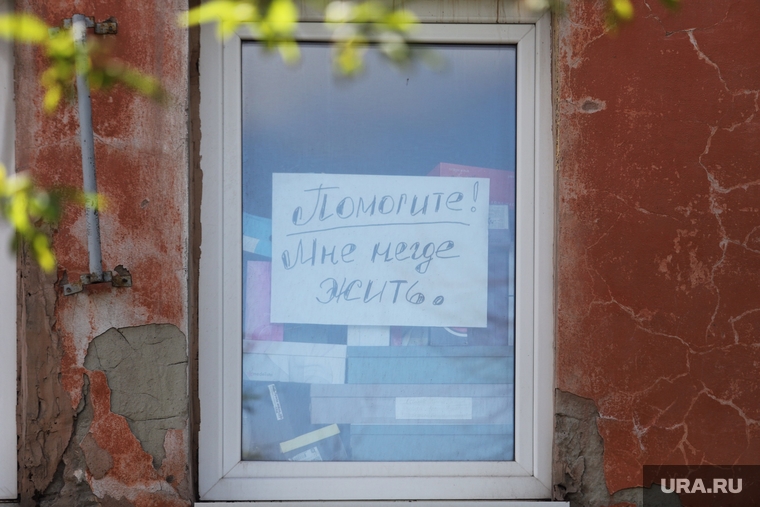 Помогите!
Мне негде
жить.
URA.RU